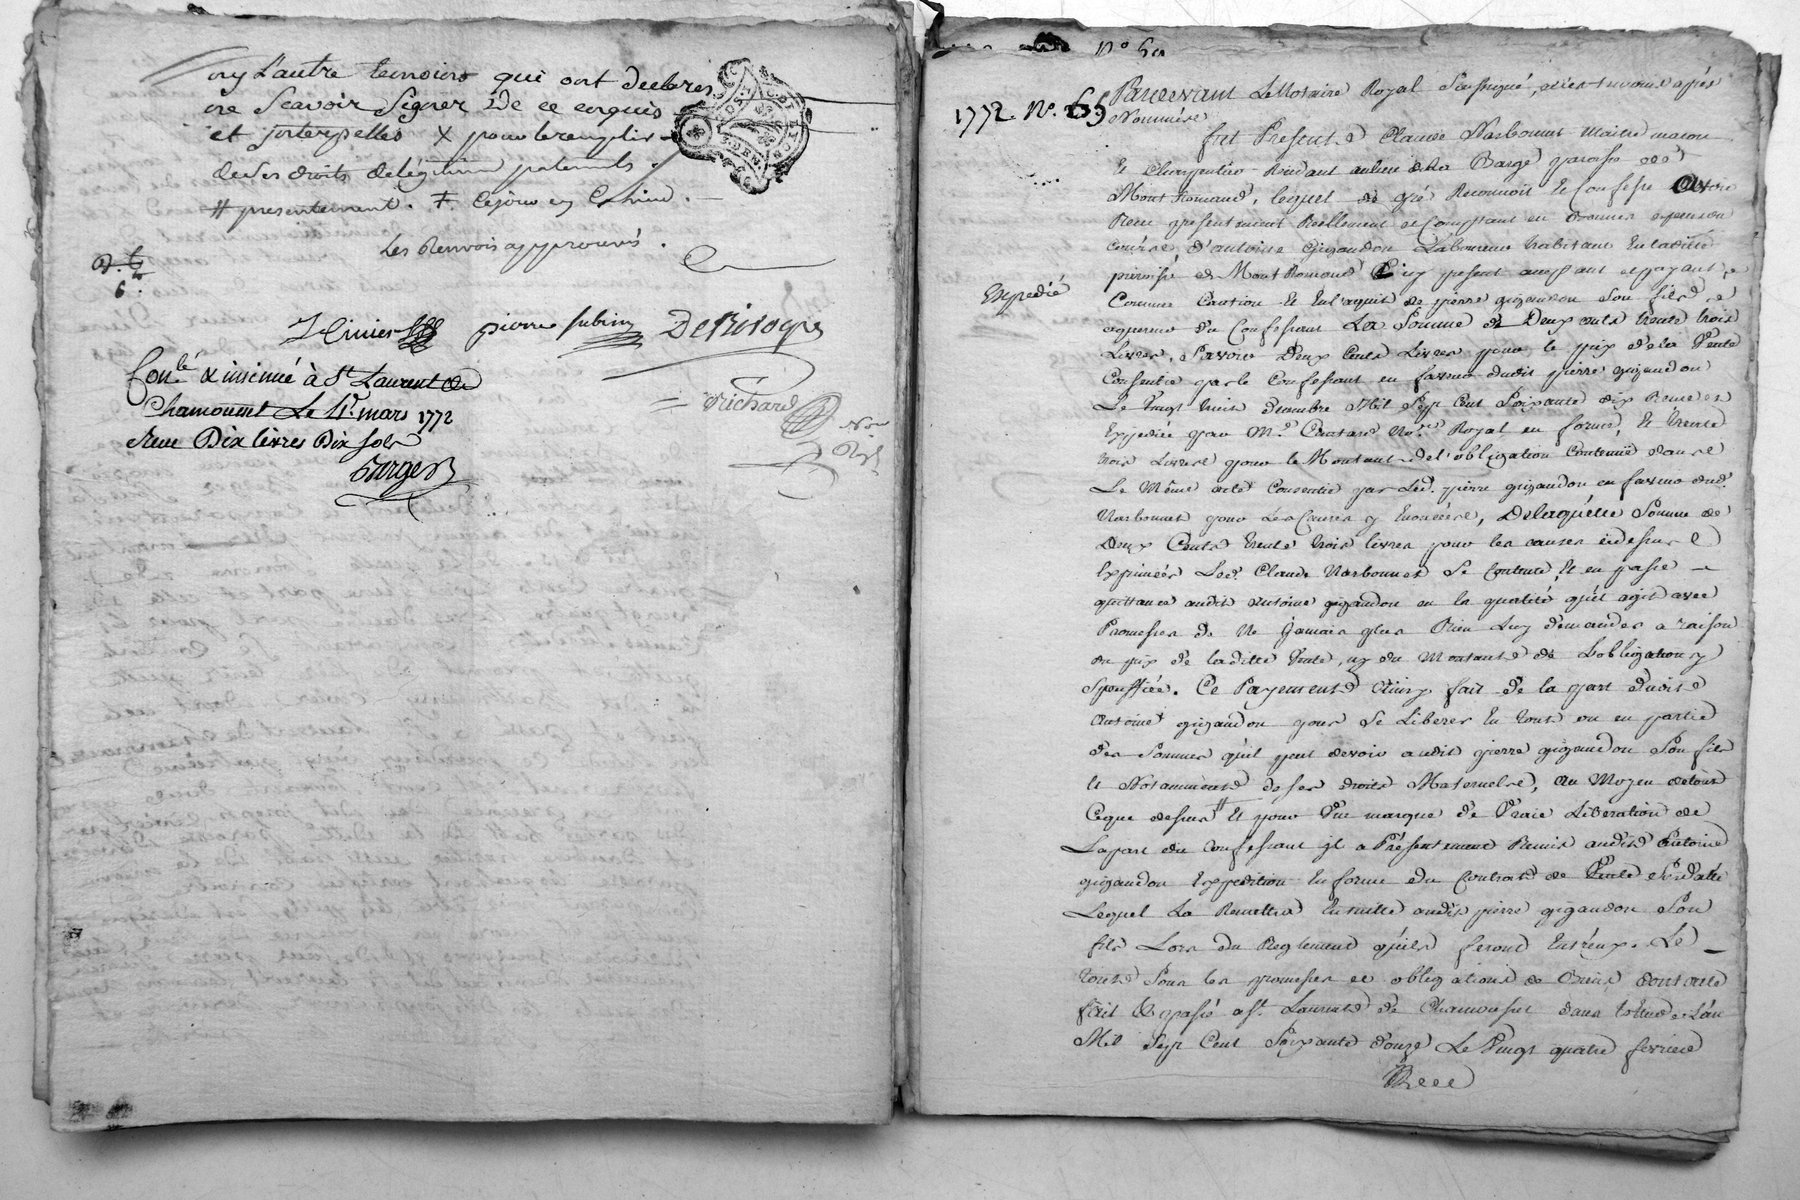 ny L'autre temoins qui ont declarés
ne scavoir signer De ce enquis
et jnterpellés X pour le remplir
de ses droits de legitime paternels.
# presentement. ‡ Le jour
Les Renvois approuvés.
6.
pierre
Richard
Con.lé & insinué à St Laurent de
Chamousset Le mars 1772
Reçu Dix livres Dix sols
N°
1772. N°. 65
Pardevant Le Notaire Royal soussigné, et les temoins après
Nommés
fut Present Claude Narbonnet Maitre macon
et Charpentier Residant au lieu de la Barge paroisse de
Mont Romand, lequel de gré Reconnoit et Confesse avoir
Reçu presentement Reellement et Comptant en
d'antoine gigandon Laboureur habitant en laditte
paroisse de Mont Romand Cy present acceptant et payant
Expedié
Comme Caution et en l'aquit de pierre gigandon son fils
acquereur du Confessant La somme de Deux cents trente trois
Livres, savoir deux Cents Livres pour le prix de la Vente
Consentie par le Confessant en faveur dudit pierre gigandon
Le Vingt huit Mil sept Cent soixante dix Reçue et
Expediée par M.e Coustard No.re Royal en forme, et trente
trois Livres pour le Montant de l'obligation Contenüe dans
Le Même acte Consentie par Led. pierre gigandon en faveur dud.
Narbonnet pour les Causes y Enoncées, De laquelle somme de
Deux Cents trente trois livres pour les causes cidessus
Exprimées Led. Claude Narbonnet se Contente, et en passe
quittance audit Antoine gigandon en la qualité qu'il agit avec
Promesses de Ne jamais plus Rien Luy demander a raison
du prix de laditte Vente, ny du Montant de L'obligation y
spécifiée. Ce Payement Ainsy fait de la part dudit
Antoine gigandon pour se Liberer En tout ou en partie
des sommes qu'il peut devoir audit pierre gigandon son fils
et Notamment de ses droits Maternels, au Moyen de tout
Ceque dessus # et pour une marque de Vraie Liberation de
La part du Confessant jl a Présentement Remis audit Antoine
gigandon Expedition En forme du Contrat de Vente
Lequel La Remettra Ensuitte audit pierre gigandon son
fils Lors du Reglement qu'ils feront Entr'eux. Le
tout sous les promesses et obligations de Biens, dont acte
fait et passé a St. Laurent de Chamousset dans l'an
Mil sept Cent soixante douze Le Vingt quatre fevrier